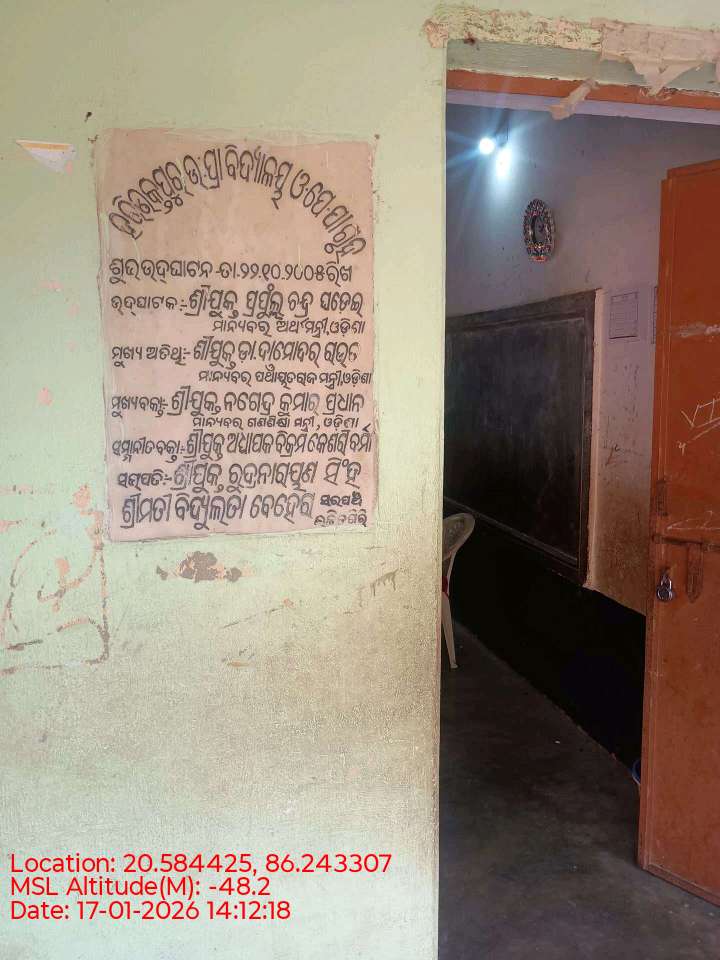 ଉ.ପ୍ରା ବିଦ୍ୟାଳୟ ଓ
ଶୁଭ ଉଦ୍‌ଘାଟନ - ତା.୨୨.୧୦.୨୦୦୫ରିଖ
ଉଦ୍‌ଘାଟକ:- ଶ୍ରୀଯୁକ୍ତ ପ୍ରଫୁଲ୍ଲ ଚନ୍ଦ୍ର ଘଡ଼େଇ
ମାନ୍ୟବର ଅର୍ଥ ମନ୍ତ୍ରୀ, ଓଡ଼ିଶା
ମୁଖ୍ୟ ଅତିଥି:- ଶ୍ରୀଯୁକ୍ତ ଡ଼ା. ଦାମୋଦର ରାଉତ
ମାନ୍ୟବର ପଞ୍ଚାୟତରାଜ ମନ୍ତ୍ରୀ, ଓଡ଼ିଶା
ମୁଖ୍ୟବକ୍ତା:- ଶ୍ରୀଯୁକ୍ତ ନଗେନ୍ଦ୍ର କୁମାର ପ୍ରଧାନ
ମାନ୍ୟବର ଗଣଶିକ୍ଷା ମନ୍ତ୍ରୀ, ଓଡ଼ିଶା
ସମ୍ମାନୀତବକ୍ତା:- ଶ୍ରୀଯୁକ୍ତ ଅଧ୍ୟାପକ ବିକ୍ରମ କେଶରୀ ବର୍ମା
ସଭାପତି:- ଶ୍ରୀଯୁକ୍ତ ରୁଦ୍ରନାରାୟଣ ସିଂହ
ଶ୍ରୀମତୀ ବିଦ୍ୟୁଲତା ବେହେରା ସରପଞ୍ଚ
ଲଳିତଗିରି
Location: 20.584425, 86.243307
MSL Altitude(M): -48.2
Date: 17-01-2026 14:12:18